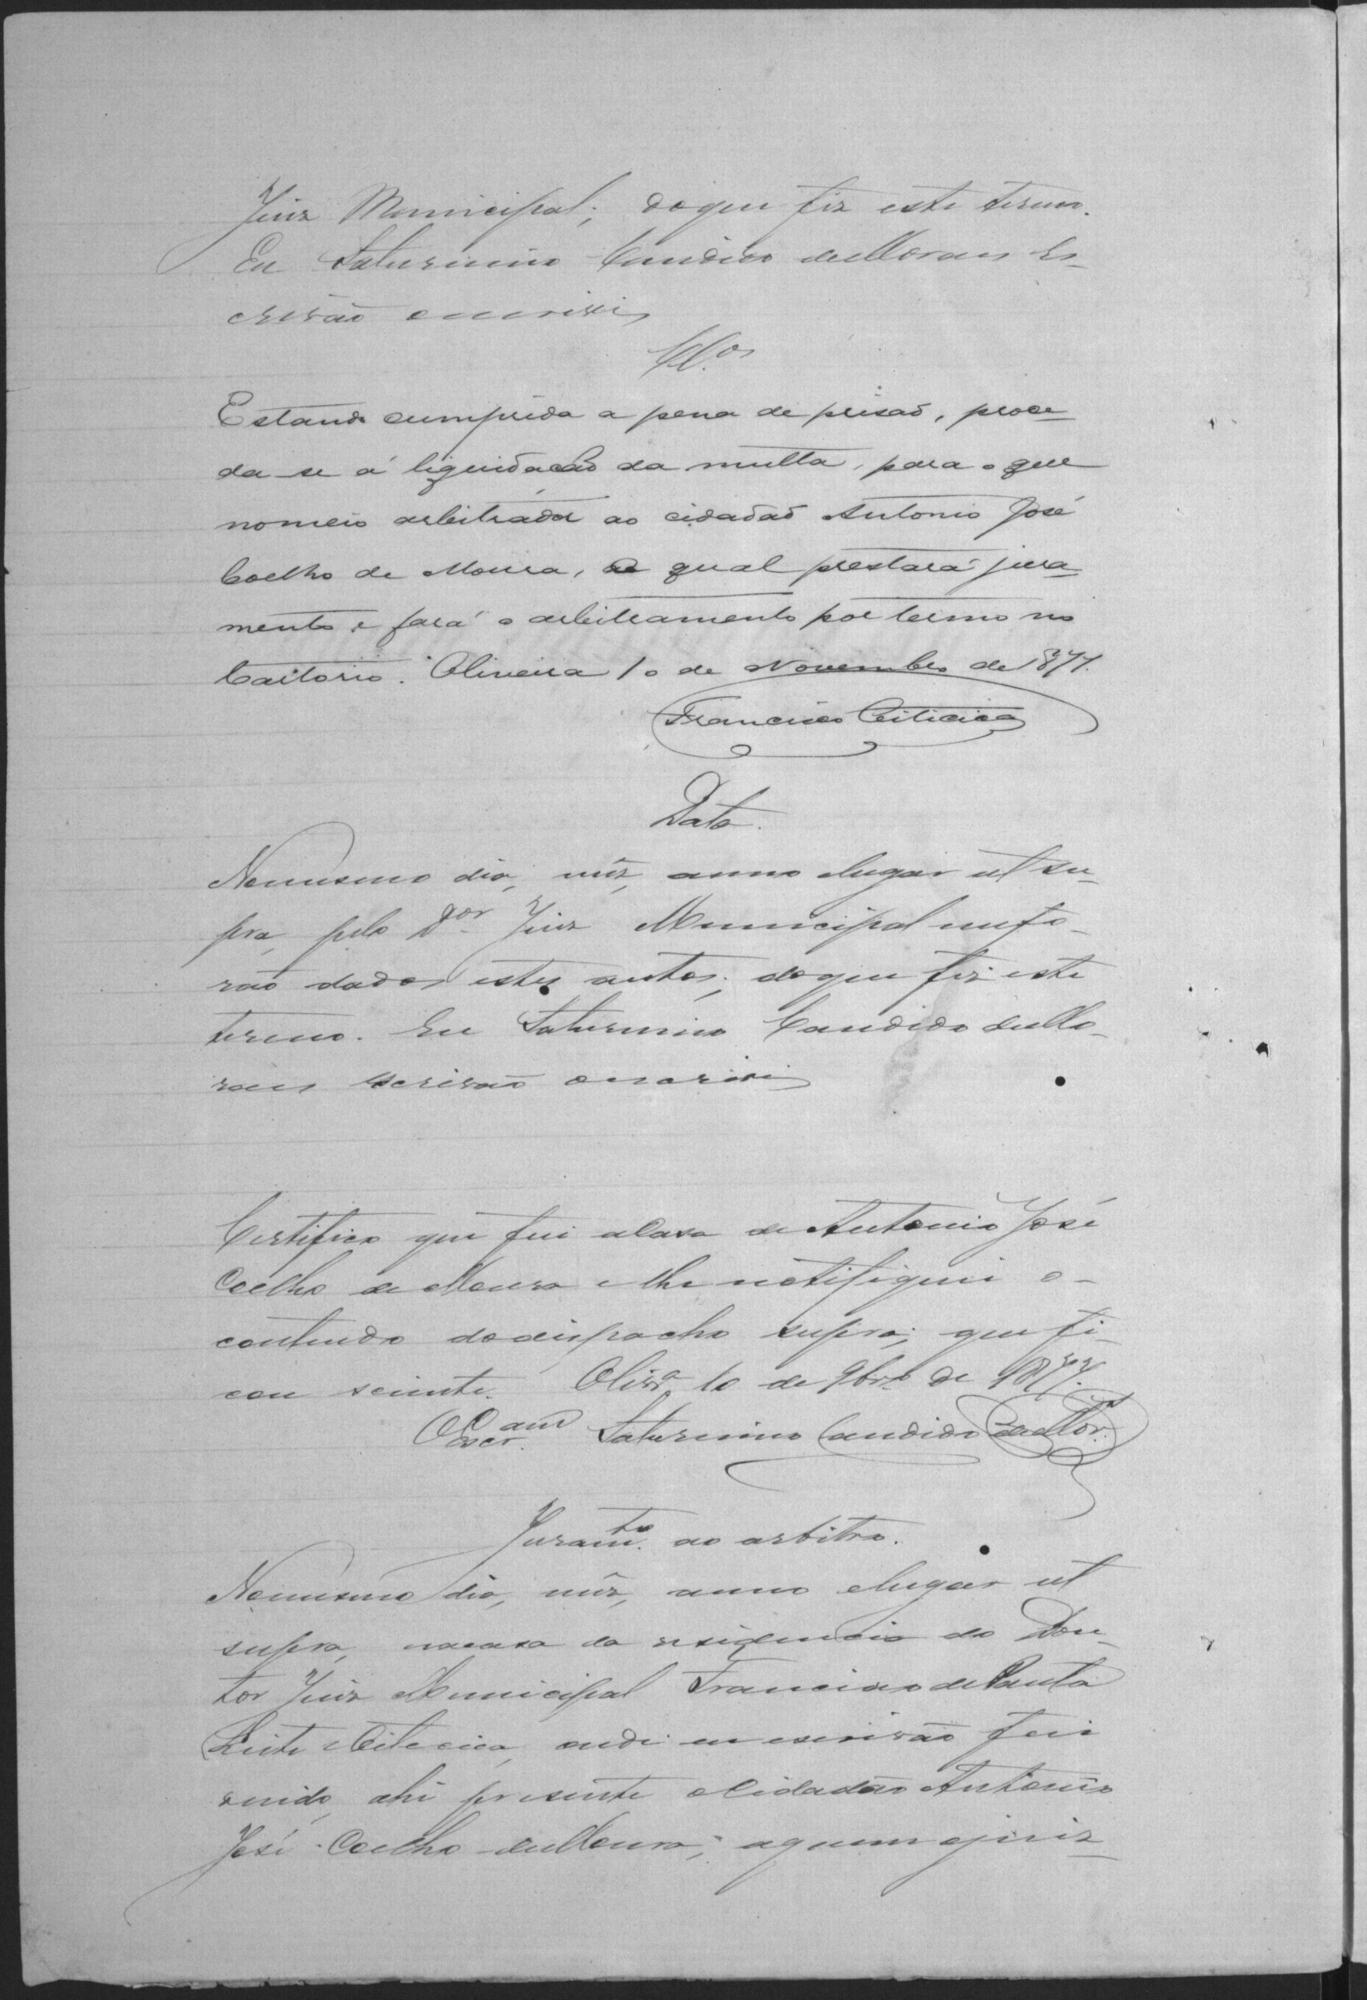 Juiz Municipal; doque fiz este termo.
Eu Saturnino Candido de Moraes Es-
crivão o escrivi
Clos
Estando cumprida a pena de prisaõ, proce-
da-se á liquidacaõ da multa, para o que
nomeio arbitrador ao cidadaõ Antonio José
Coelho de Moura, o qual prestará jura-
mento e fará o arbitramento por termo no
Cartorio. Oliveira 10 de Novembro de 1877.
Francisco Citicica
Data.
Nomesmo dia, mêz, anno elugar ut su-
pra, pelo Dor. Juiz Municipal mefo-
rão dados estes autos; doque fiz este
termo. Eu Saturnino Candido deMo-
raes Escrivão o escrivi
Certifico que fui a Casa de Antonio José
Coelho de Moura e lhe notifiquei o-
contendo dodespacho supra; que fi-
cou sciente. Olivra 10 de 9bro de 1877.
O Escram Saturnino Candido de Mor.
Juramto. ao arbitro.
Nomesmo dia, mêz, anno elugar ut
supra, nacasa da residencia do Dou-
tor Juiz Municipal Francisco de Paula
Leite Citicica, onde eu escrivão fui
vindo, ahi presente o Cidadão Antonio
José Coelho deMoura; aquem ojuiz